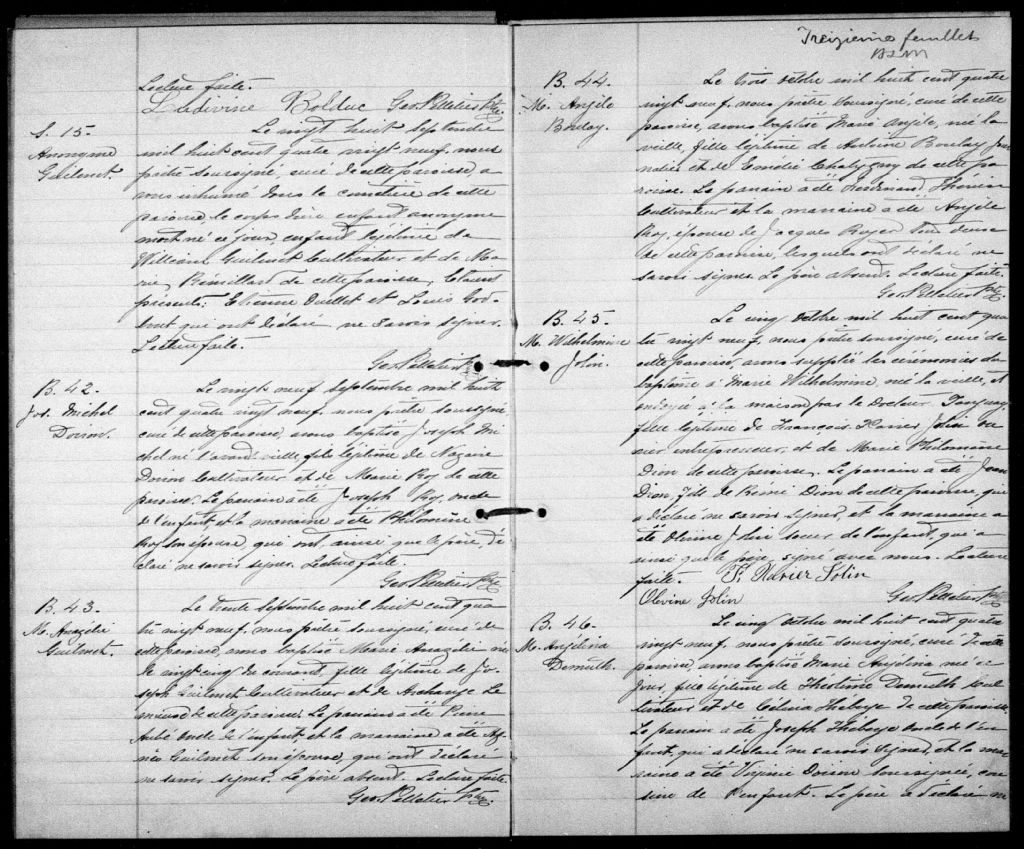 Lecture faite.
Ludivine Bolduc Geo. Pelletier Ptre
S. 15.
Anonyme
Guilmet.
Le vingt huit Septembre
mil huit cent quatre vingt neuf, nous
prêtre soussigné, curé de cette paroisse, a
vons inhumé dans le cimetière de cette
paroisse, le corps d'un enfant anonyme
mort né ce jour, enfant légitime de
William Guilmet Cultivateur et de Ma
rie Rémillard de cette paroisse. Etaient
présents: Etienne Ouellet et Louis God
bout qui ont déclaré ne savoir signer.
Lecture faite.
Geo. Pelletier Ptre
B. 42
Jos. Michel
Doiron.
Le vingt neuf septembre mil huit
cent quatre vingt neuf, nous prêtre soussigné,
curé de cette paroisse, avons baptisé Joseph Mi
chel né l'avant veille, fils légitime de Nazaire
Doiron Cultivateur et de Marie Roy de cette
paroisse. Le parrain a été Joseph Roy, oncle
de l'enfant et la marraine a été Philomène
Roy son épouse, qui ont, ainsi que le père, dé
claré ne savoir signer. Lecture faite.
Geo. Pelletier Ptre
B. 43.
M. Anazélie
Guilmet.
Le trente Septembre mil huit cent qua
tre vingt neuf, nous prêtre soussigné, curé de
cette paroisse, avons baptisé Marie Anazélie née
le vingt cinq du courant, fille légitime de Jo
seph Guilmet Cultivateur et de Archange Le
mieux de cette paroisse. Le parrain a été Pierre
Aubé oncle de l'enfant et la marraine a été Ag
nès Guilmet son épouse, qui ont déclaré
ne savoir signer. Le père absent. Lecture faite.
Geo. Pelletier Ptre
Treizième feuillet
B. 44.
M. Angèle
Boulay.
Le trois octobre mil huit cent quatre
vingt neuf, nous prêtre soussigné, curé de cette
paroisse, avons baptisé Marie Angèle, née la
veille, fille légitime de Antoine Boulay Jour
nalier et de Emélie de cette pa
roisse. Le parrain a été Ferdinand
Cultivateur et la marraine a été Angèle
Roy, épouse de Jacques
de cette paroisse, lesquels ont déclaré ne
savoir signer. Le père absent. Lecture faite.
Geo. Pelletier Ptre
B. 45.
M. Wilhelmine
Jolin.
Le cinq octobre mil huit cent qua
tre vingt neuf, nous prêtre soussigné, curé de
cette paroisse avons suppléé les cérémonies du
baptême à Marie Wilhelmine, née la veille, et
ondoyée à la maison par le Docteur Tanguay,
fille légitime de François Xavier Jolin
entrepreneur, et de Marie Philomène
Dion de cette paroisse. Le parrain a été Jean
Dion, fils de Rémi Dion de cette paroisse, qui
a déclaré ne savoir signer, et la marraine a
été Olivine Jolin soeur de l'enfant, qui a
ainsi que le père, signé avec nous. Lecture
faite. F. Xavier Jolin
Olivine Jolin Geo. Pelletier Ptre
B. 46.
M. Angélina
Demuth.
Le cinq octobre mil huit cent quatre
vingt neuf, nous prêtre soussigné, curé de cette
paroisse, avons baptisé Marie Angélina née ce
jour, fille légitime de Théotime Demuth Cul
tivateur et de Célina Théberge de cette paroisse.
Le parrain a été Joseph Théberge oncle de l'en
fant, qui a déclaré ne savoir signer, et la mar
raine a été Virginie Doiron soussignée, cou
sine de l'enfant. Le père a déclaré ne